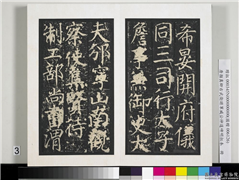 希晏開府儀
同三司行太子
詹事兼御史大
夫邠寧山南觀
察使集賢待
制工部尚書渭
3